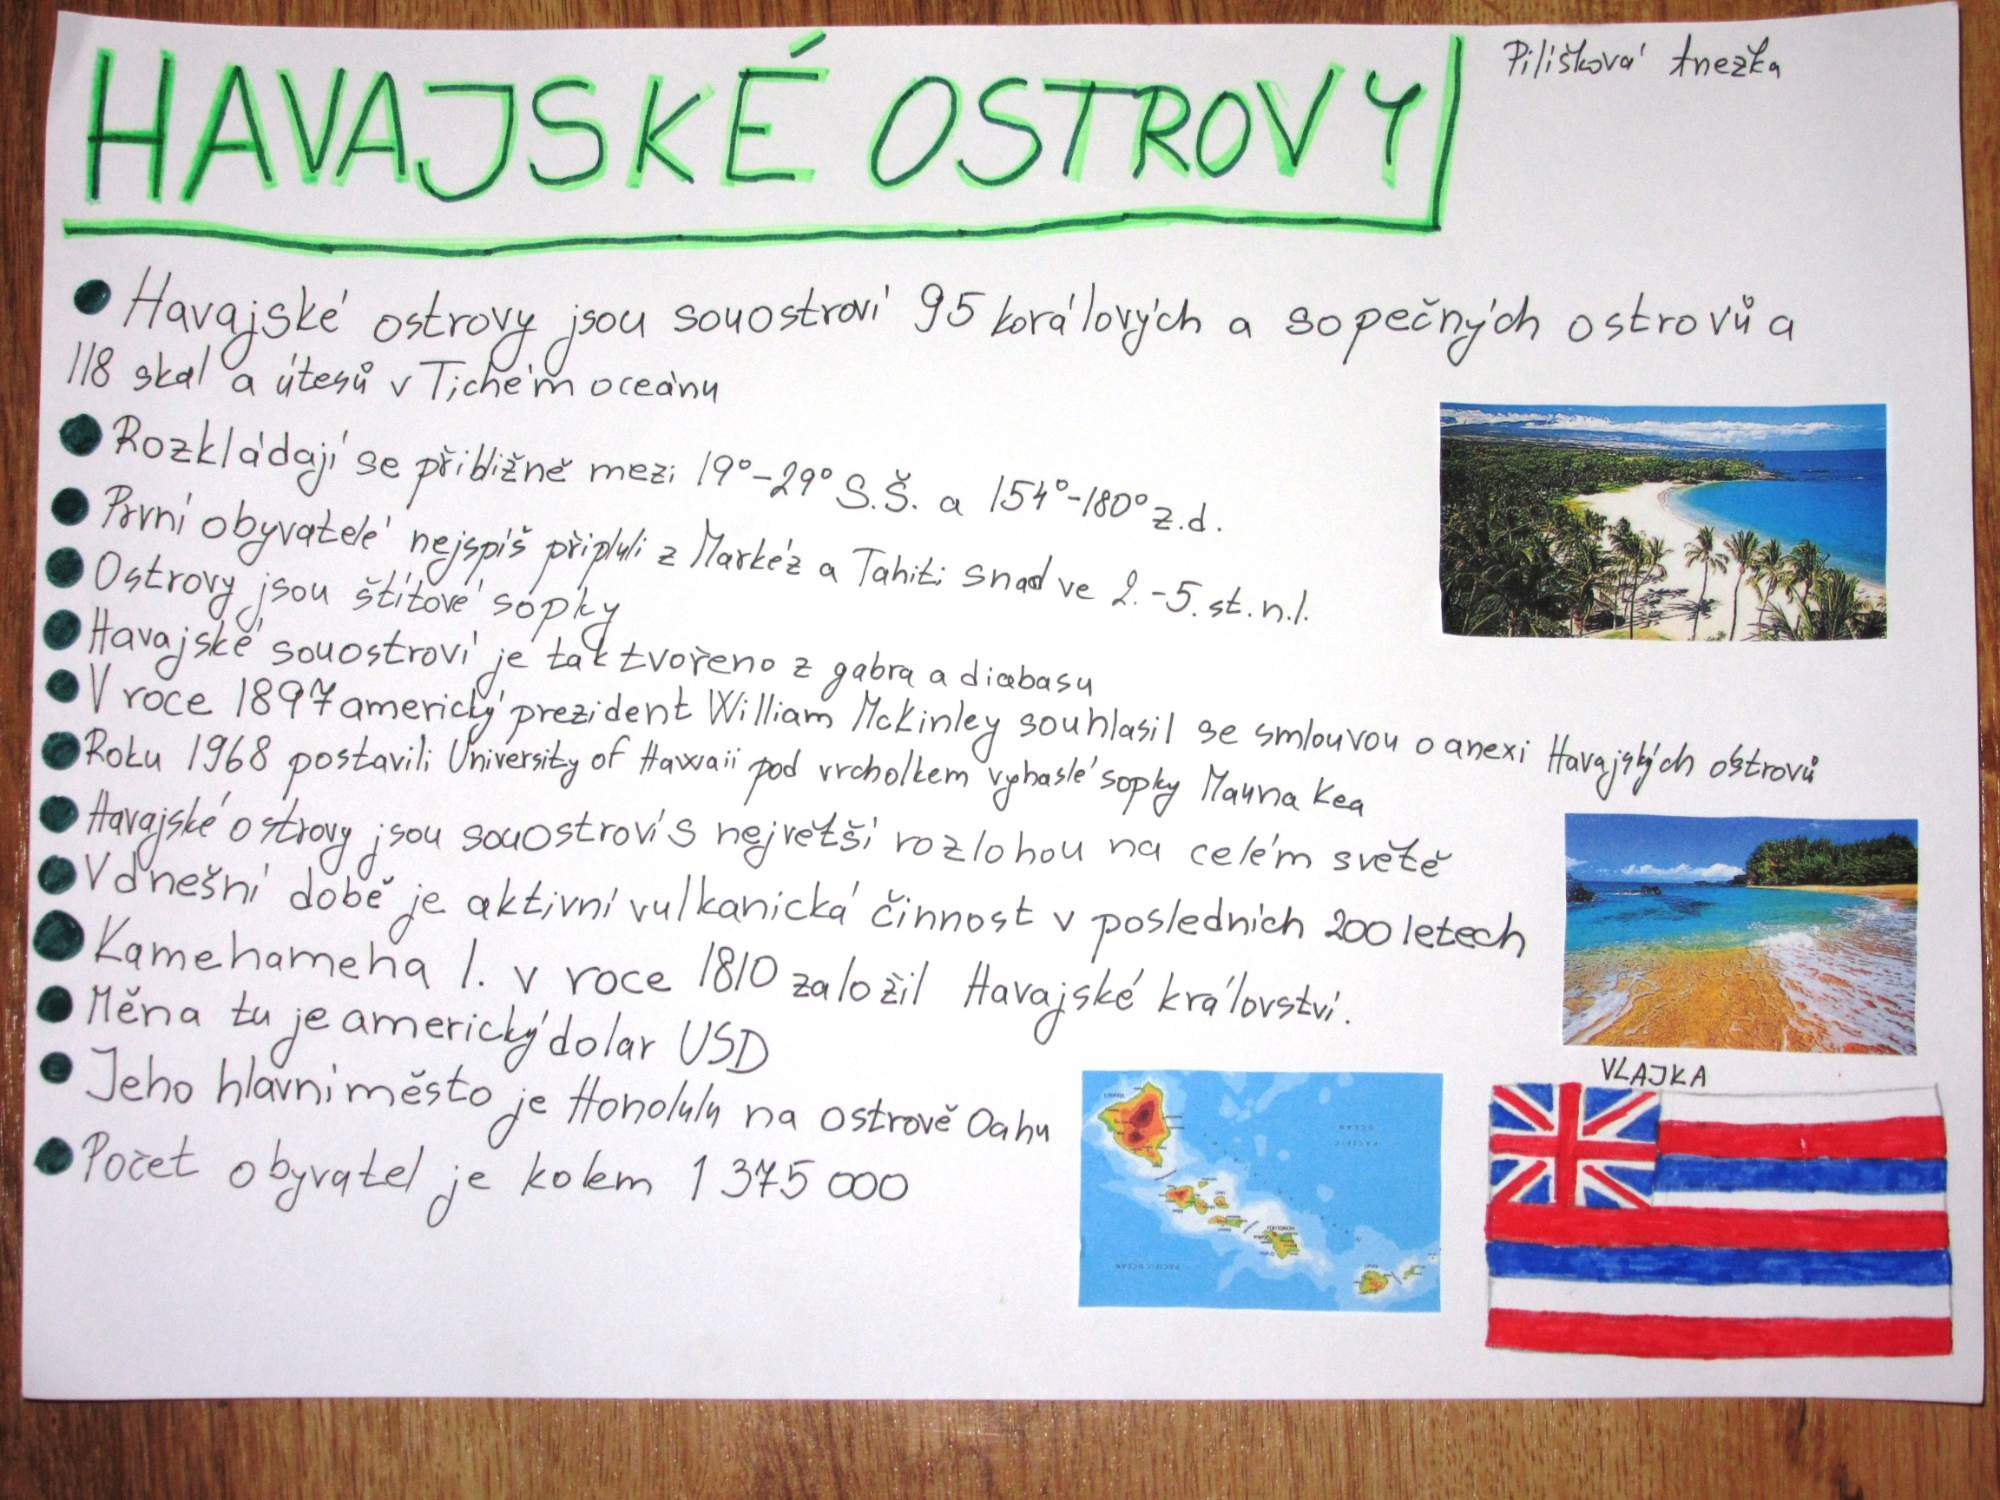 HAVAJSKÉ OSTROVY
Pilišková Anežka
Havajské ostrovy jsou souostroví 95 korálových a sopečných ostrovů a
118 skal a útesů v Tichém oceánu
Rozkládají se přibližně mezi 19°-29° S.Š. a 154°-180° z.d.
První obyvatelé nejspíš připluli z Markéz a Tahiti snad ve 2.-5. st.n.l.
Ostrovy jsou štítové sopky
Havajské souostroví je tak tvořeno z gabra a diabasu
V roce 1897 americký prezident William McKinley souhlasil se smlouvou o anexi Havajských ostrovů
Roku 1968 postavili University of Hawaii pod vrcholkem vyhaslé sopky Mauna Kea
Havajské ostrovy jsou souostroví s největší rozlohou na celém světě
V dnešní době je aktivní vulkanická činnost v posledních 200 letech
Kamehameha I. v roce 1810 založil Havajské království.
Měna tu je americký dolar USD
Jeho hlavní město je Honolulu na ostrově Oahu
Počet obyvatel je kolem 1 375 000
VLAJKA
PACIFIC OCEAN
PACIFIC OCEAN